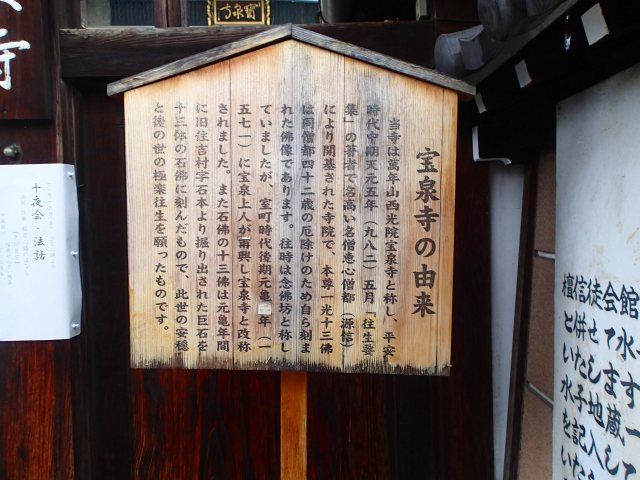 寳泉寺
宝泉寺の由来
当寺は萬年山西光院宝泉寺と称し、平安
時代中期天元五年(九八二)五月「往生要
集」の著者で名高い名僧恵心僧都(源信)
により開基された寺院で、本尊一光十三佛
は同僧都四十二歳の厄除けのため自ら刻ま
れた佛像であります。往時は念佛坊と称し
ていましたが、室町時代後期元亀二年(一
五七一)に宝泉上人が再興し宝泉寺と改称
されました。また石佛の十三佛は元亀年間
に旧住吉村字石本より掘り出された巨石を
十三体の石佛に刻んだもので、此世の安穏
と後の世の極楽往生を願ったものです。
十夜会・法話
檀信徒会館
と併せて水
いたします
水子地蔵一
を記入して
寺